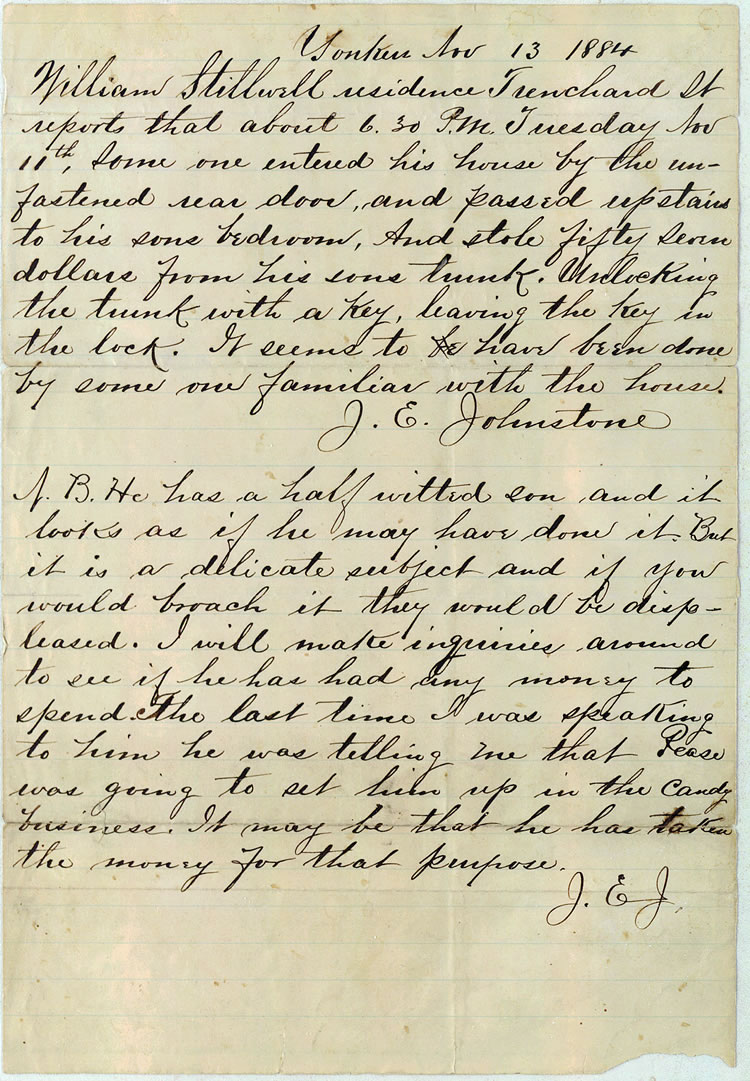 Yonkers Nov 13 1884
William Stillwell residence Trenchard St
reports that about 6.30 P.M. Tuesday Nov
11th, Some one entered his house by the un-
fastened rear door, and passed upstairs
to his sons bedroom, And stole fifty seven
dollars from his sons trunk. Unlocking
the trunk with a key, leaving the key in
the lock. It seems to have been done
by some one familiar with the house.
J. E. Johnstone
N. B. He has a half witted son and it
looks as if he may have done it. But
it is a delicate subject and if you
would broach it they would be disp-
leased. I will make inquiries around
to see if he has had any money to
spend. The last time I was speaking
to him he was telling me that Pease
was going to set him up in the candy
business. It may be that he has taken
the money for that purpose.
J. E J.